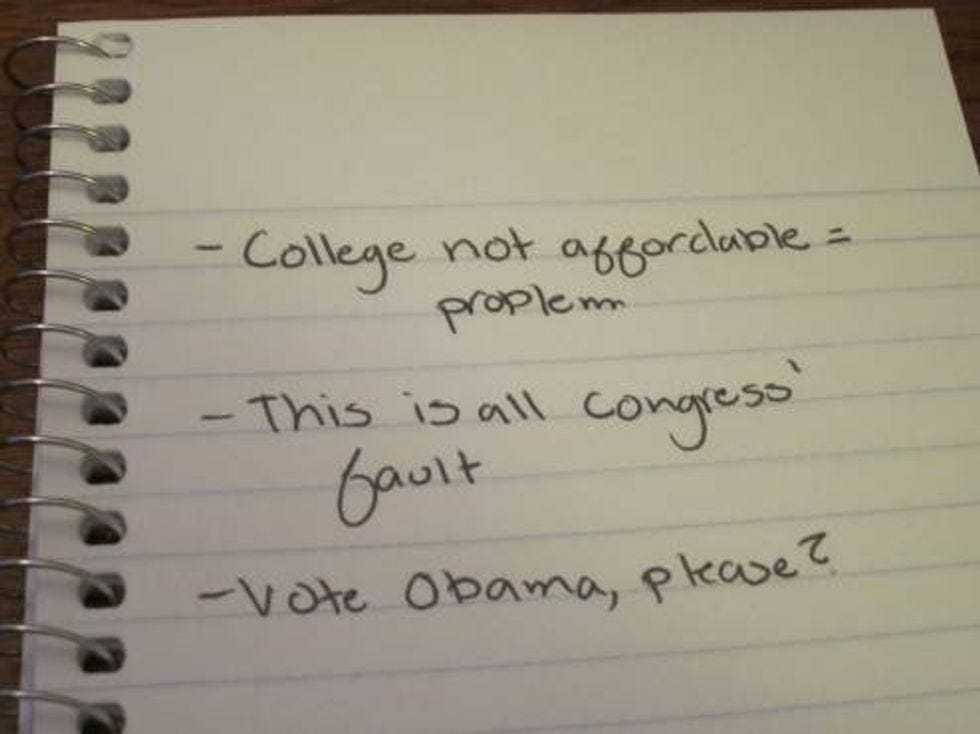 - College not affordable =
proplem
- This is all Congress'
fault
- Vote Obama, please?